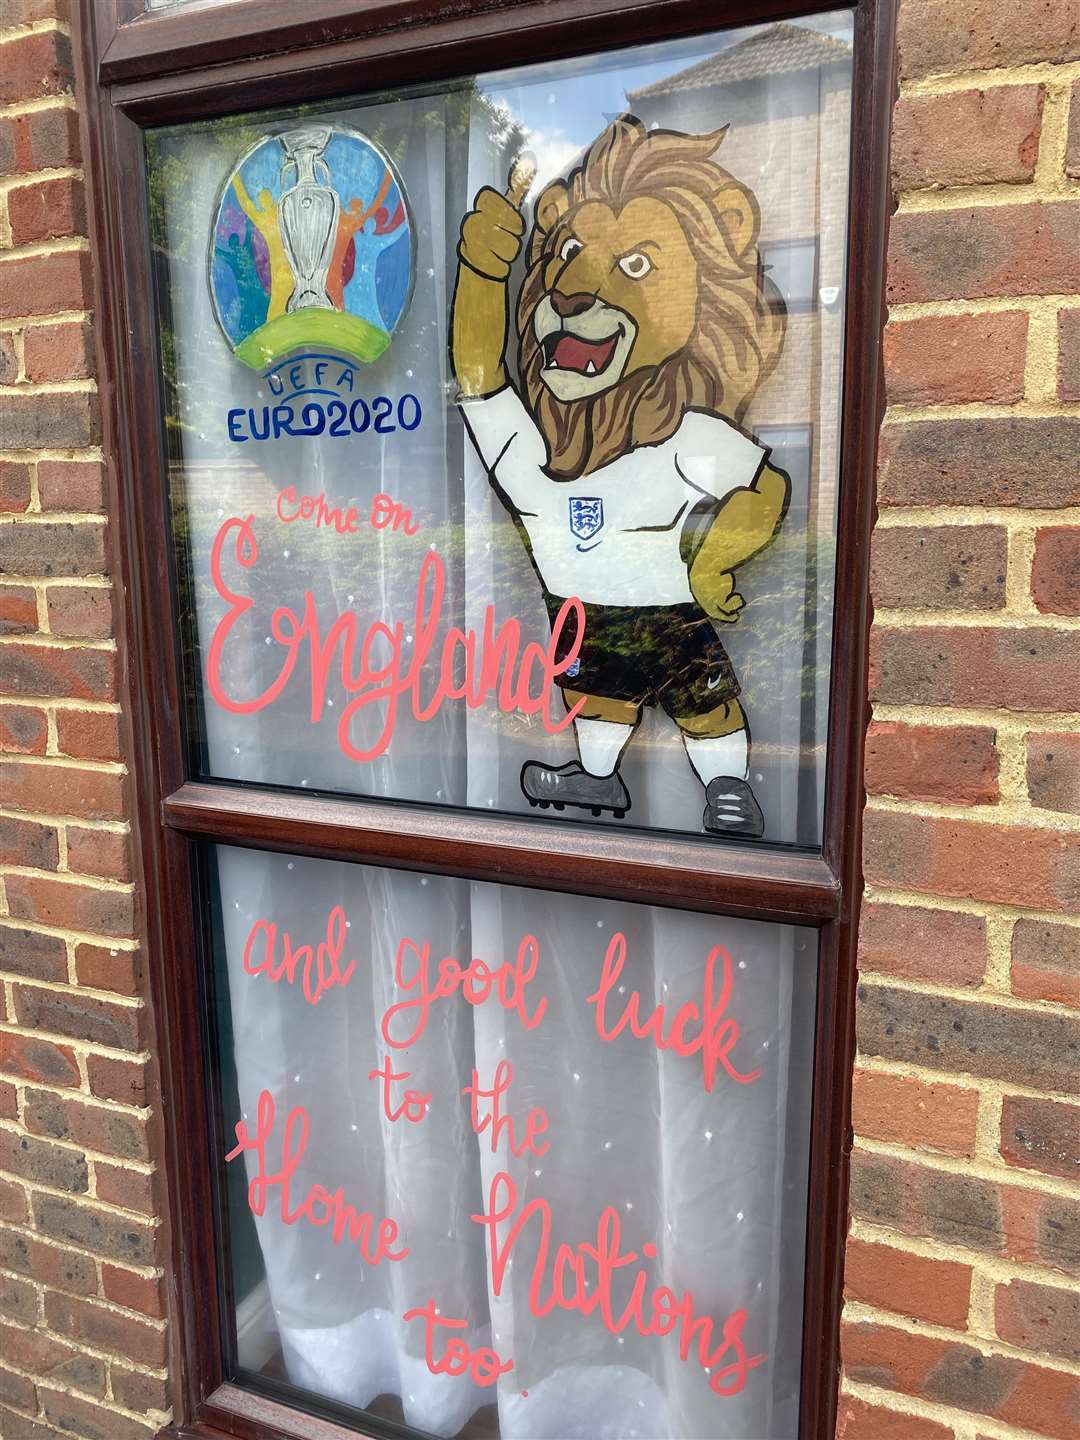 UEFA
EURO2020
Come on
England
and good luck
to the
Home Nations
too.